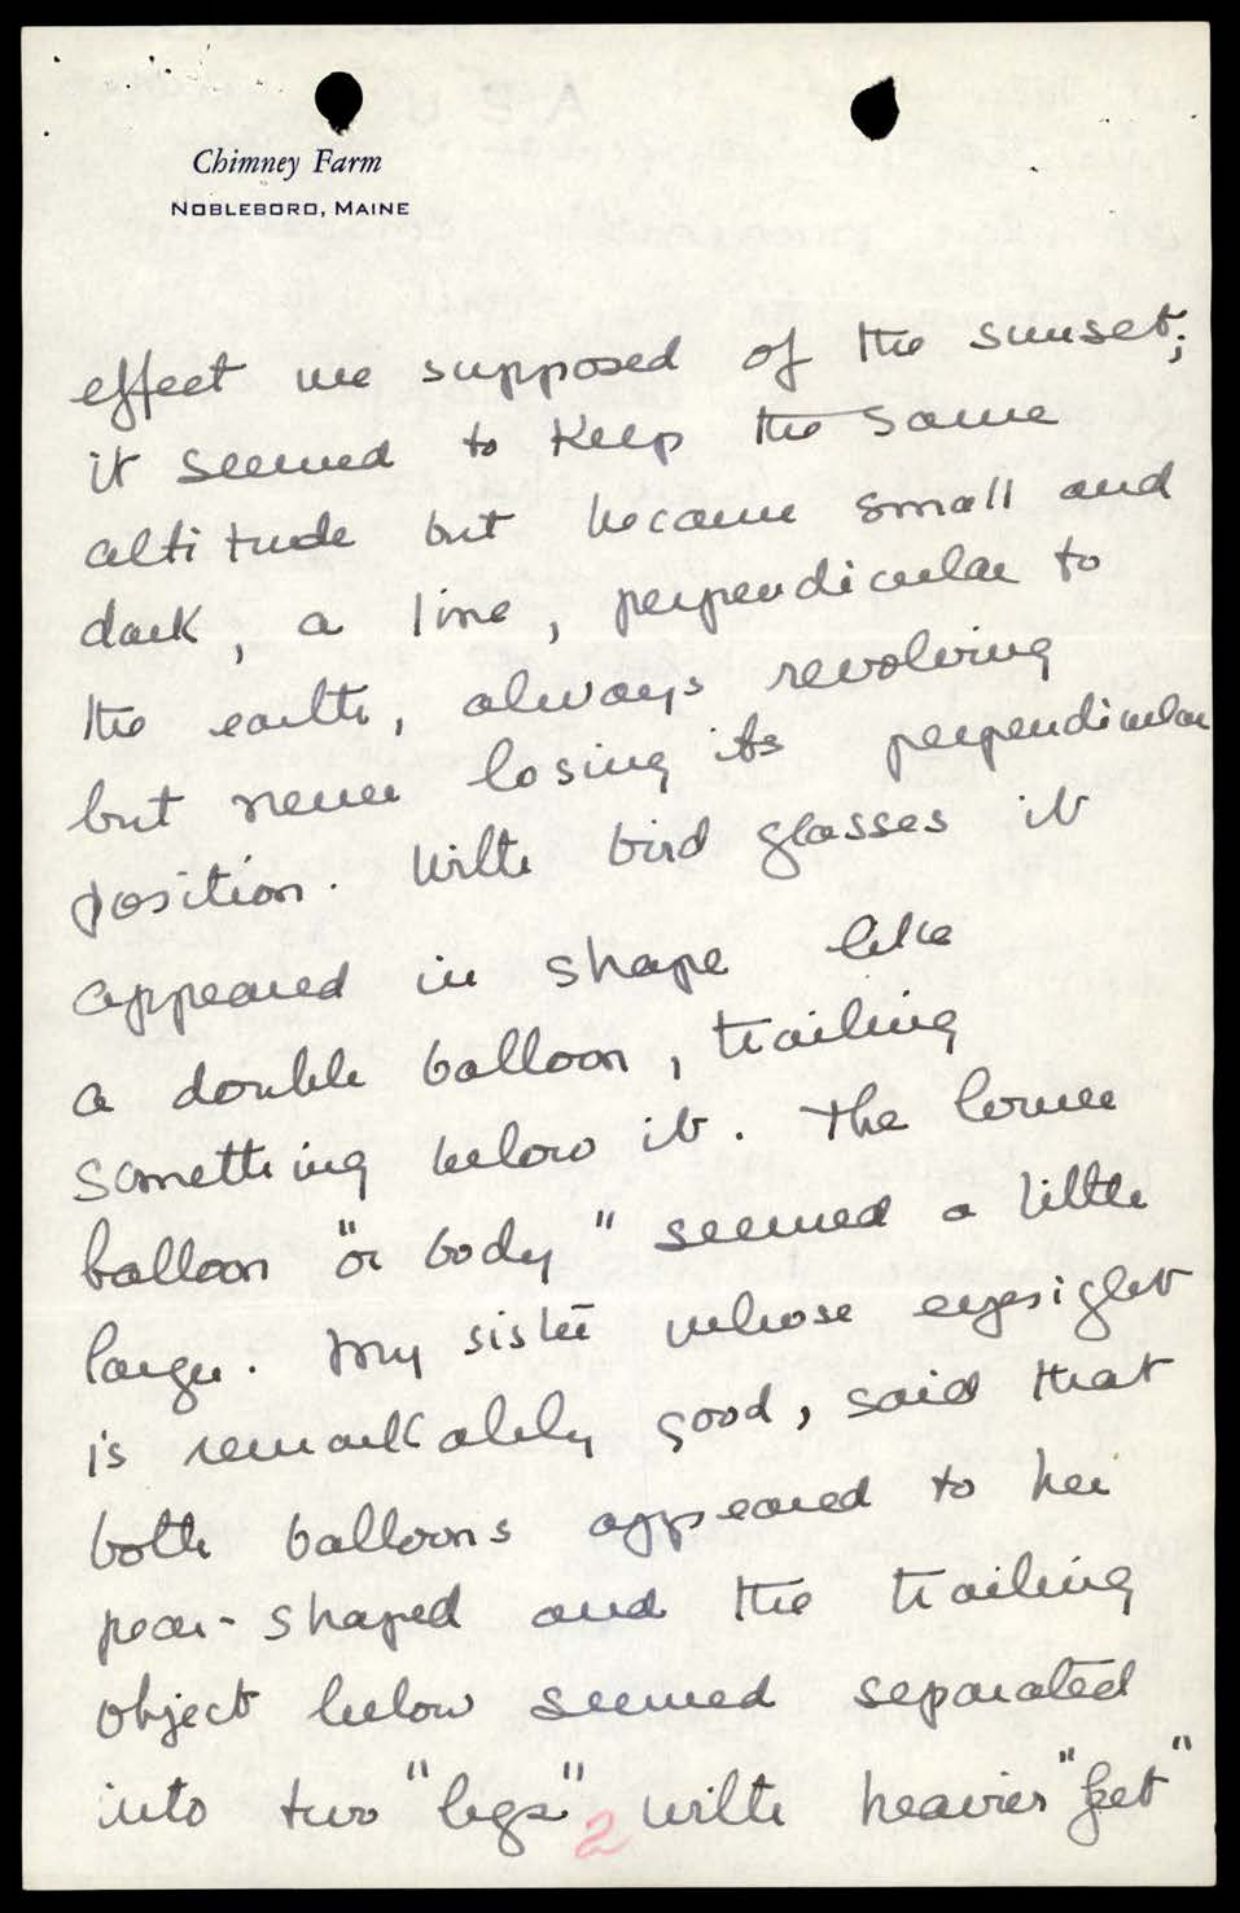 Chimney Farm
NOBLEBORO, MAINE
effect we supposed of the sunset;
it seemed to keep the same
altitude but became small and
dark, a line, perpendicular to
the earth, always revolving
but never losing its perpendicular
position. With bird glasses it
appeared in shape like
a double balloon, trailing
something below it. The lower
balloon "or body" seemed a little
larger. My sister whose eyesight
is remarkably good, said that
both balloons appeared to her
pear-shaped and the trailing
object below seemed separated
into two "legs" with heavier "feet"
2